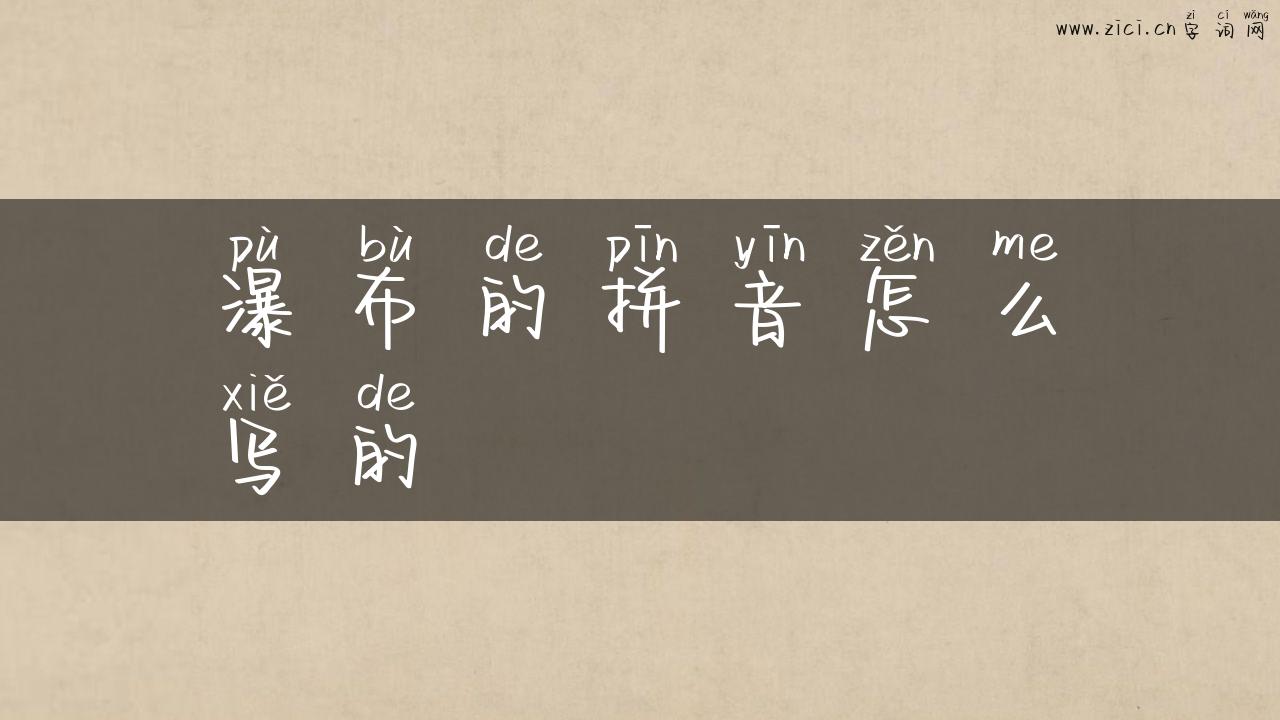 zì cí wǎng
www.zici.cn 字词网
pù bù de pīn yīn zěn me
瀑布的拼音怎么
xiě de
写的